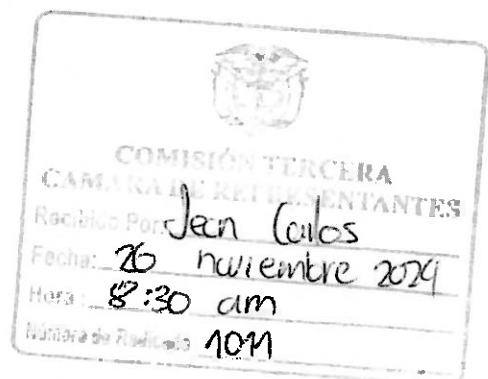 COMISIÓN TERCERA
CAMARA DE REPRESENTANTES
Recibido Por: Jean Carlos
Fecha: 26 noviembre 2024
Hora: 8:30 am
Número de Radicado 1011